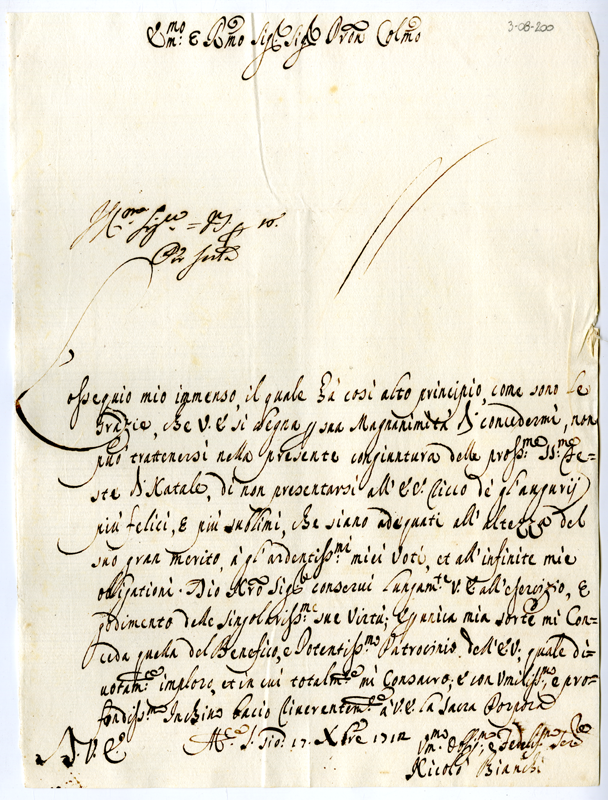 Em.mo e R.mo Sig.r Sig.r Pron Colmo
3-08-200
Per Scilla
L'ossequio mio immenso il quale hà così alto principio, come sono le
Grazie, che V. E. si degna p sua Magnanimità di concedermi, non
può trattenersi nella presente congiuntura delle pross.me SS.me Fe-
ste di Natale, di non presentarsi all' E. V. ricco de gl'augurij
più felici, e più sublimi, che siano adeguati all' altezza del
suo gran merito, à gl'ardentiss.mi miei voti, et all'infinite mie
obligationi. Dio Nro Sig.r conservi V. E. all'esercizio, e
godimento delle singolariss.me sue virtù; e p unica mia sorte mi Con-
ceda quella del Benefico, e Potentiss.mo Patrocinio dell' E. V. quale di-
votam.te imploro, et in cui totalm.te mi Consacro; e con Umiliss.mo, e pro-
fondiss.mo Inchino bacio riverentem.te à V. E. la Sacra Porpora
D. V. E. 17. Xbre 1712
Um.mo e Fedeliss.mo
Nicolò Bianchi